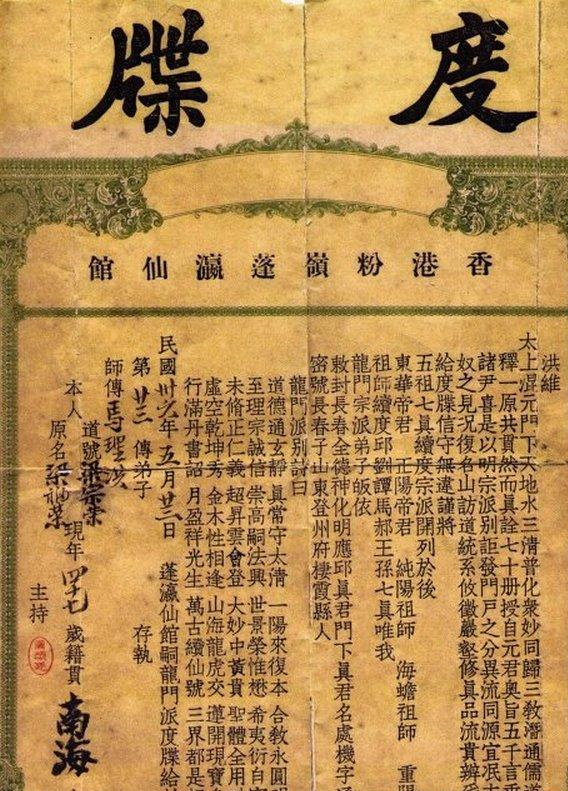 度牒
香港粉嶺蓬瀛仙館
洪維
太上混元門下天地水三清普化衆妙同歸三敎濳通儒道
釋一原共貫然而眞詮七十册授自元君奧旨五千言
諸尹喜是以明宗派別詎發門戶之分異流同源宜泯
奴之見況復名山訪道統系攸徵嚴壑修眞品流貴辨
給度牒信守無違謹將
五祖七眞續度宗派開列於後
東華帝君 正陽帝君 純陽祖師 海蟾祖師 重陽
祖師續度邱劉譚馬郝王孫七眞唯我
龍門宗派弟子皈依
敕封長春全德神化明應邱眞君門下眞君名處機字通
密號長春子山東登州府棲霞縣人
龍門派別詩曰
道德通玄靜 眞常守太清 一陽來復本 合敎永圓
至理宗誠信 崇高嗣法興 世景榮惟懋 希夷衍自
未脩正仁義 超昇雲會登 大妙中黃貴 聖體全用
虛空乾坤秀 金木性相逢 山海龍虎交 蓮開現寶
行滿丹書詔 月盈祥光生 萬古續仙號 三界都是
民國卅六年五月廿三日 蓬瀛仙館嗣龍門派度牒給
第廿三傳弟子 存執
師傅馬聖
道號梁宗榮
本人 原名梁福榮 現年四十七歲籍貫南海
主持